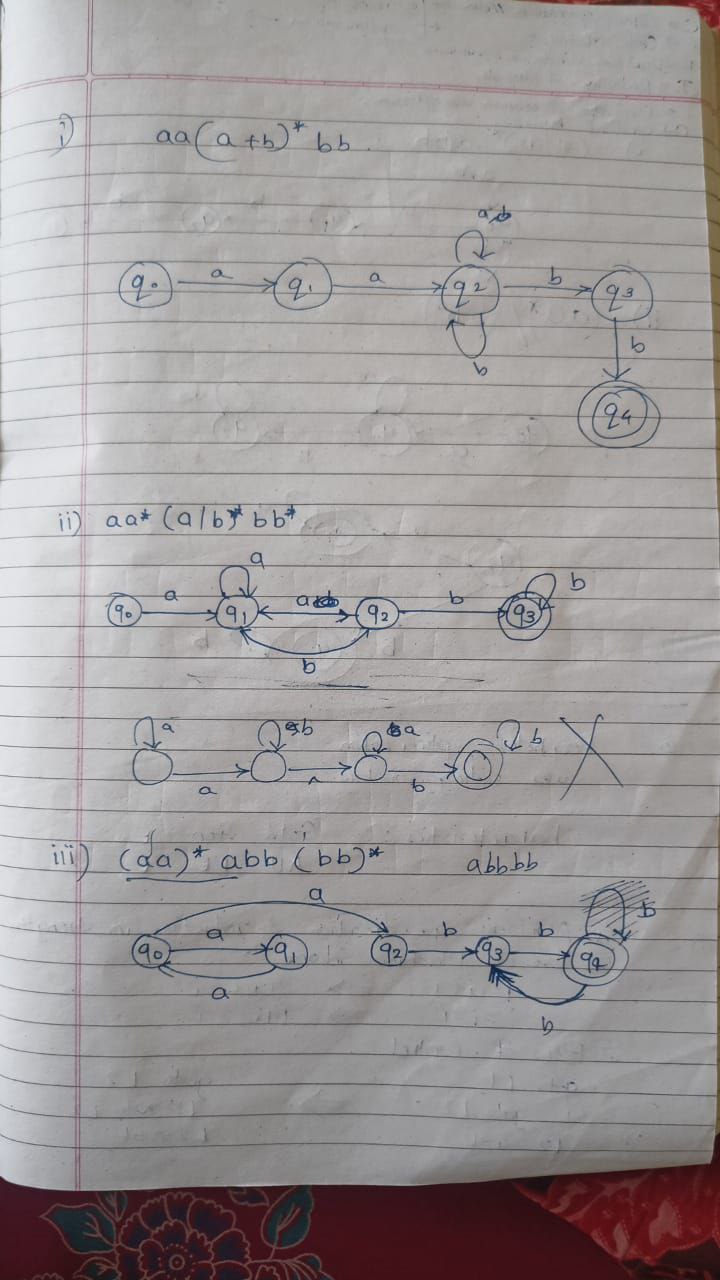 i) aa(a+b)* bb
a
b
q0 a q1 a q2 b q3
b
b
q4
ii) aa* (a/b)* bb*
a
q0 a q1 a q2 b q3 b
b
a b a b
a b
iii) (aa)* abb (bb)* abbbb
a
q0 a q1 q2 b q3 b q4 b
a
b